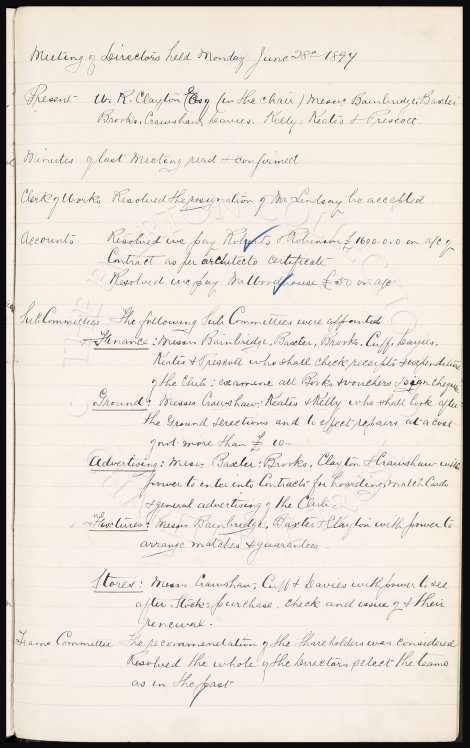 Meeting of Directors held Monday June 28th 1897
Present W. R. Clayton Esq (in the chair) Messrs Bainbridge: Baxter
Brooks, Crawshaw, Davies. Kelly: Keates & Prescott.
Minutes of last Meeting read & confirmed
Clerk of Works Resolved the resignation of Mr Lindsay be accepted.
Accounts Resolved we pay Roberts & Robinson £1600.0.0 on a/c of
Contract as per architects certificate
Resolved we pay Mr Woodhouse £50 on a/c
Sub Committees The following Sub Committees were appointed
Finance: Messrs Bainbridge, Baxter, Brooks, Cuff, Davies,
Keates & Prescott who shall check receipts & expenditure
of the Club: examine all Books & vouchers & sign cheques
Ground: Messrs Crawshaw, Keates & Kelly who shall look after
the Ground erections and to effect repairs at a cost
of not more than £10.
Advertising: Messrs Baxter: Brooks, Clayton & Crawshaw with
power to enter into Contracts for hoarding, Match Cards
& general advertising of the Club.
Fixtures: Messrs Bainbridge, Baxter & Clayton with power to
arrange matches & guarantees.
Stores: Messrs Crawshaw, Cuff & Davies with power to see
after Stock: purchase, check and issue of & their
renewal.
Teams Committee The recommendation of the Shareholders was considered
Resolved the whole of the Directors select the teams
as in the past
THE EVERTON COLLECTION